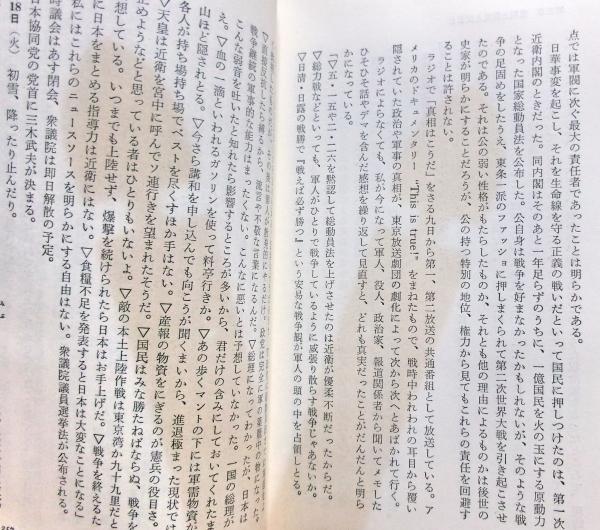 点では軍閥に次ぐ最大の責任者であったことは明らかである。
日華事変を起こし、それを生命線を守る正義の戦いだといって国民に押しつけたのは、第一次
近衛内閣のときだった。同内閣はそのあと一年足らずのうちに、一億国民を火の玉にする原動力
となった国家総動員法を公布した。公自身は戦争を好まなかったかもしれないが、そのような戦
争の足固めをしたうえ、東条一派のファッショに押しまくられて第二次世界大戦を引き起こさせ
たのである。それは公の弱い性格がもたらしたものか、それとも他の理由によるものかは後世の
史家が明らかにすることだろうが、公の持つ特別の地位、権力から見てもこれらの責任を回避す
ることは許されない。
ラジオで「真相はこうだ」をさる九日から第一、第二放送の共通番組として放送している。ア
メリカのドキュメンタリー "This is true!" をまねたもので、戦時中われわれの耳目から覆い
隠されていた政治や軍事の真相が、東京放送劇団の劇化によって次から次へとあばかれて行く。
ラジオによらなくても、私が今になって軍人、役人、政治家、報道関係者から聞いてメモした
ひそひそ話やデマを含んだ感想を繰り返して見直すと、どれも真実だったことがだんだんと明ら
かになっている。
「▽五・一五や二・二六を黙認して総動員法を上げさせたのは近衛が優柔不断だったからだ。
▽総力戦などといっても、軍人がひとりで戦争しているように威張り散らす戦争じゃあないか。
▽日清・日露の戦勝で『戦えば必ず勝つ』という安易な戦争観が軍人の頭の中を占領しとる。
戦争継続の軍事的な能力はまったくない。こんなに悪いとは予想していなかった。一国の総理が
こんな弱音を吐いたと知れたら影響するところが多いから、君だけの含みにしておいてくれたま
え。▽血の一滴といわれるガソリンを使って料亭行きか。▽あの歩くマントの下には軍需物資が
山ほど隠されとる。▽今さら講和を申し込んでも向こうが聞くまいから、進退極まった現状では
各人が持ち場持ち場でベストを尽くすほか手はない。▽産報の物資をにぎるのが憲兵の役目さ。
▽天皇は近衛を宮中に呼んでソ連行きを望まれたそうだ。▽国民はみな勝たねばならぬ、戦争を
止めようなどと思っている者はひとりもいないよ。▽敵の本土上陸作戦は東京湾か九十九里だと
想している。いつまでも上陸せず、爆撃を続けられたら日本はお手上げだ。▽戦争を終えるた
に日本をまとめる指導力は近衛にはない。▽食糧不足を発表すると日本は大変なことになる」
私にはこれらのニュースソースを明らかにする自由はない。衆議院議員選挙法が公布される。
時議会はあす閉会、衆議院は即日解散の予定。
日本協同党の党首に三木武夫が決まる。
18日（火）初雪、降ったり止んだり。